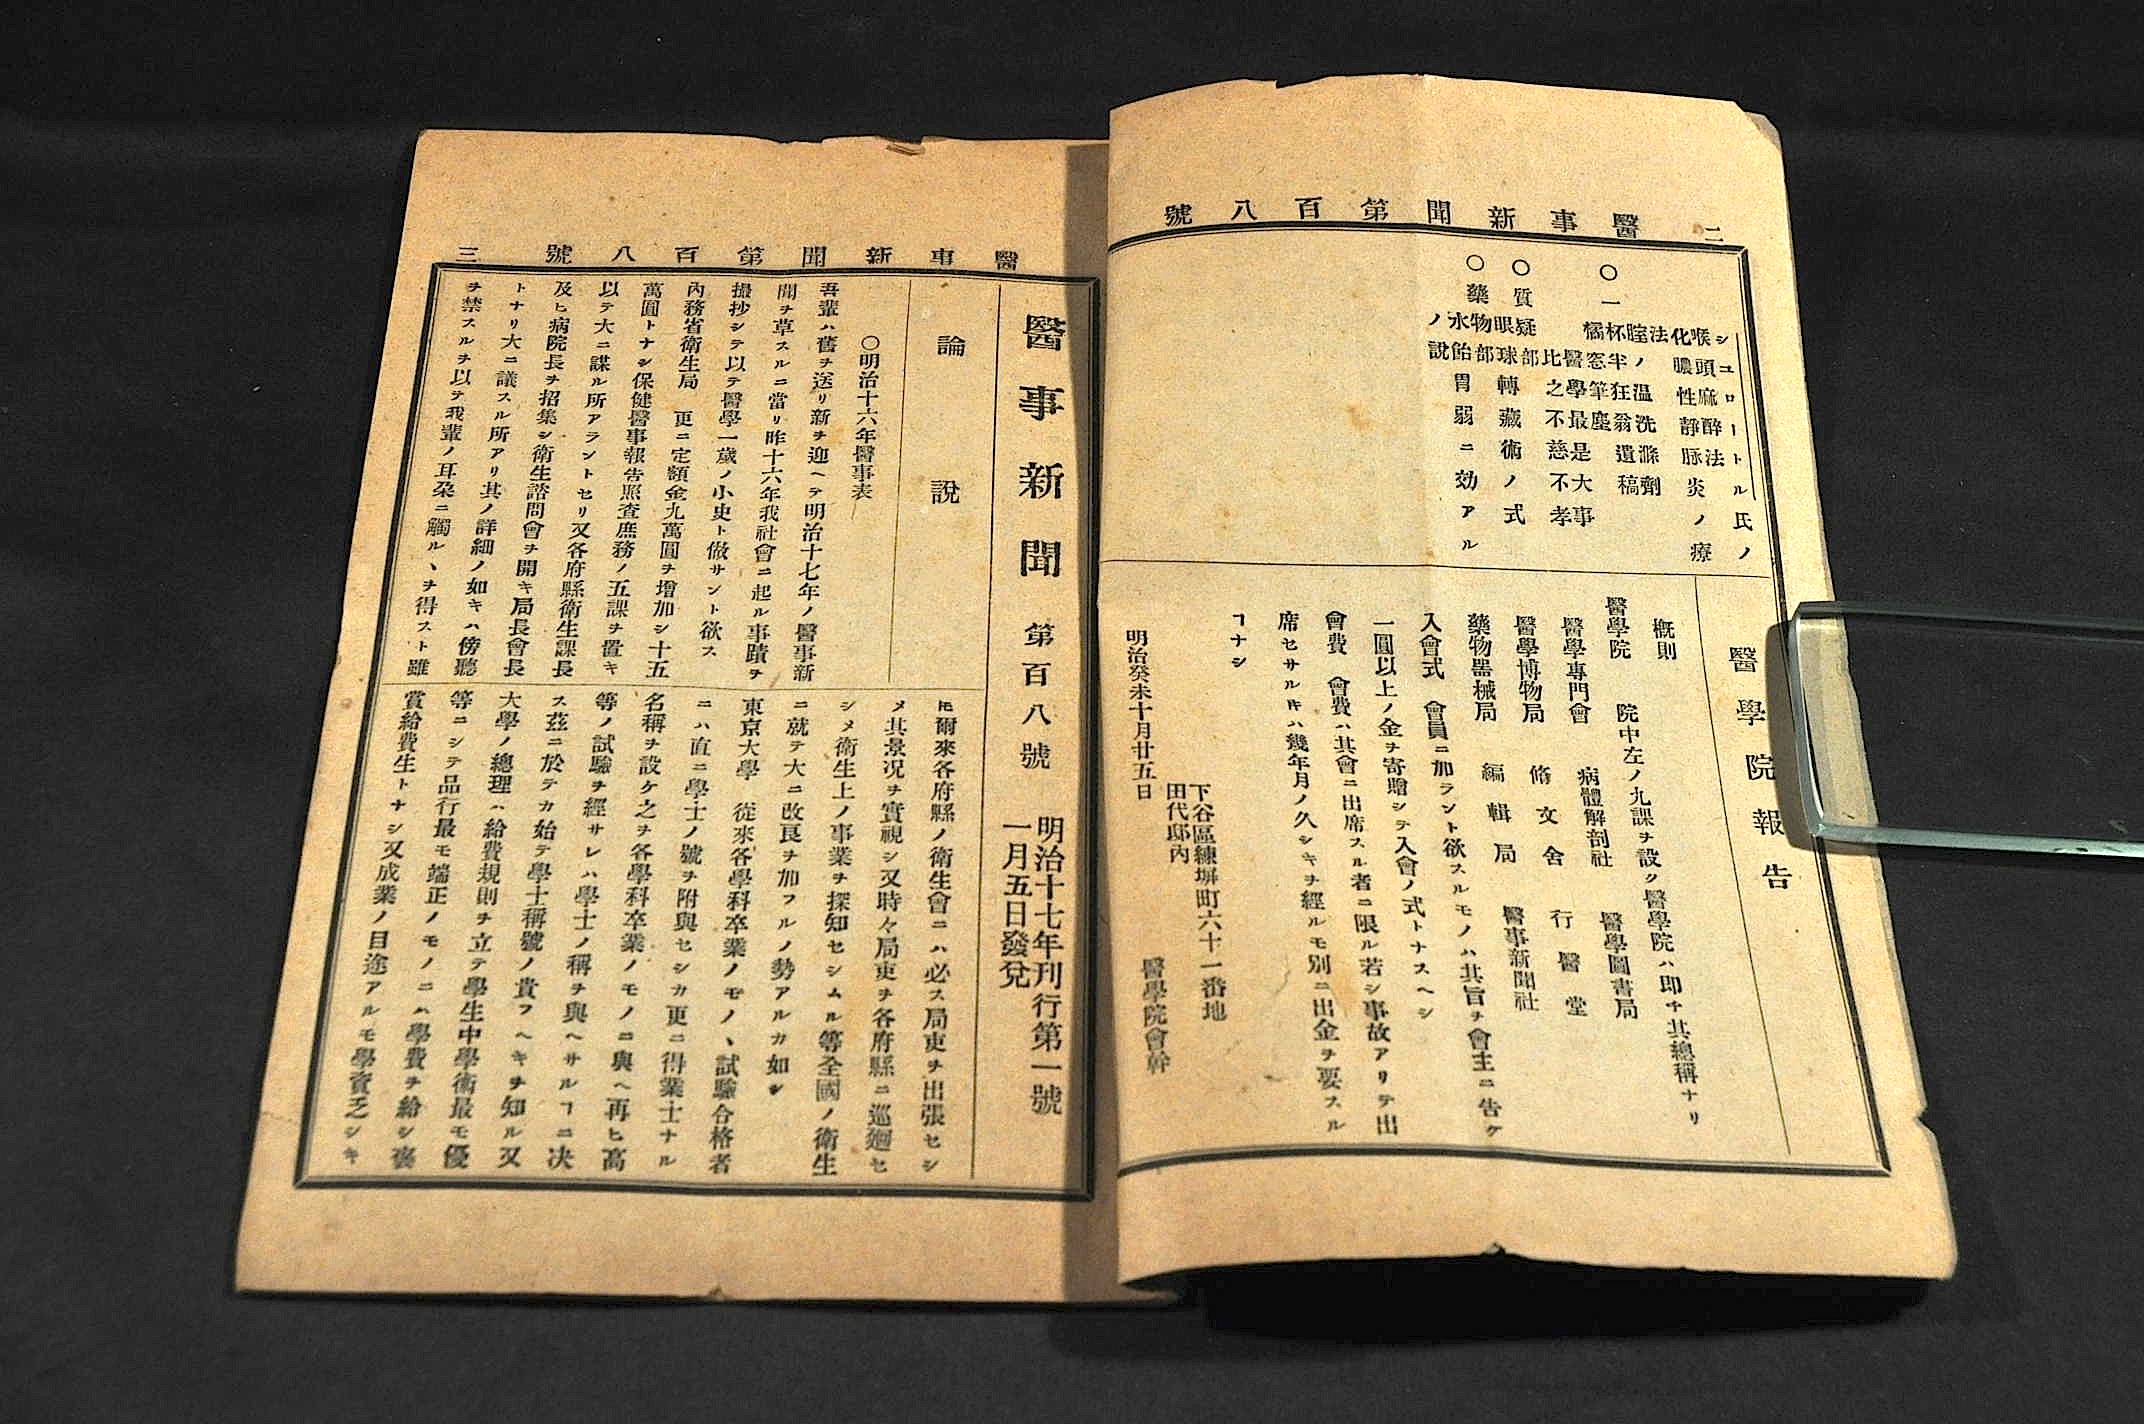 二
醫事新聞第百八號
シユロートル氏ノ
喉頭麻酔法
化膿性靜脉炎ノ療法
膣ノ温洗滌劑
〇一杯半狂翁遺稿
橘窓筆塵
醫學最是大事
比之不慈不孝
〇質疑部
眼球轉藏術ノ式
〇藥物部
水飴胃弱ニ効アルノ説
醫學院報告
概則
醫學院 院中左ノ九課ヲ設ク醫學院ハ即チ其總稱ナリ
醫學專門會 病體解剖社 醫學圖書局
醫學博物局 脩文舍 行醫堂
藥物器械局 編輯局 醫事新聞社
入會式 會員ニ加ラント欲スルモノハ其旨ヲ會主ニ告ケ
一圓以上ノ金ヲ寄贈シテ入會ノ式トナスヘシ
會費 會費ハ其會ニ出席スル者ニ限ル若シ事故アリテ出
席セサルㇳキハ幾年月ノ久シキヲ經ルモ別ニ出金ヲ要スル
ヿナシ
下谷區練塀町六十一番地
田代邸内
明治癸未十月廿五日 醫學院會幹
醫事新聞第百八號
三
醫事新聞 第百八號 明治十七年刊行第一號
一月五日發兌
論說
〇明治十六年醫事表
吾輩ハ舊ヲ送リ新ヲ迎ヘテ明治十七年ノ醫事新
聞ヲ草スルニ當リ昨十六年我社會ニ起ル事蹟ヲ
撮抄シテ以テ醫學一歲ノ小史ト做サント欲ス
內務省衛生局 更ニ定額金九萬圓ヲ增加シ十五
萬圓トナシ保健醫事報告照查庶務ノ五課ヲ置キ
以テ大ニ謀ル所アラントセリ又各府縣衛生課長
及ヒ病院長ヲ招集シ衛生諮問會ヲ開キ局長會長
トナリ大ニ議スル所アリ其ノ詳細ノ如キハ傍聽
ヲ禁スルヲ以テ我輩ノ耳朶ニ觸ルヽヲ得スト雖
𪜈爾來各府縣ノ衛生會ニハ必ス局吏ヲ出張セシ
メ其景况ヲ實視シ又時々局吏ヲ各府縣ニ巡廻セ
シメ衛生上ノ事業ヲ探知セシムル等全國ノ衛生
ニ就テ大ニ改良ヲ加フルノ勢アルカ如シ
東京大學 從來各學科卒業ノモノヽ試驗合格者
ニハ直ニ學士ノ號ヲ附與セシカ更ニ得業士ナル
名稱ヲ設ケ之ヲ各學科卒業ノモノニ與ヘ再ヒ高
等ノ試驗ヲ經サレハ學士ノ稱ヲ與ヘサルヿニ决
ス茲ニ於テカ始テ學士稱號ノ貴フヘキヲ知ル又
大學ノ總理ハ給費規則ヲ立テ學生中學術最モ優
等ニシテ品行最モ端正ノモノニハ學費ヲ給シ褒
賞給費生トナシ又成業ノ目途アルモ學資乏シキ